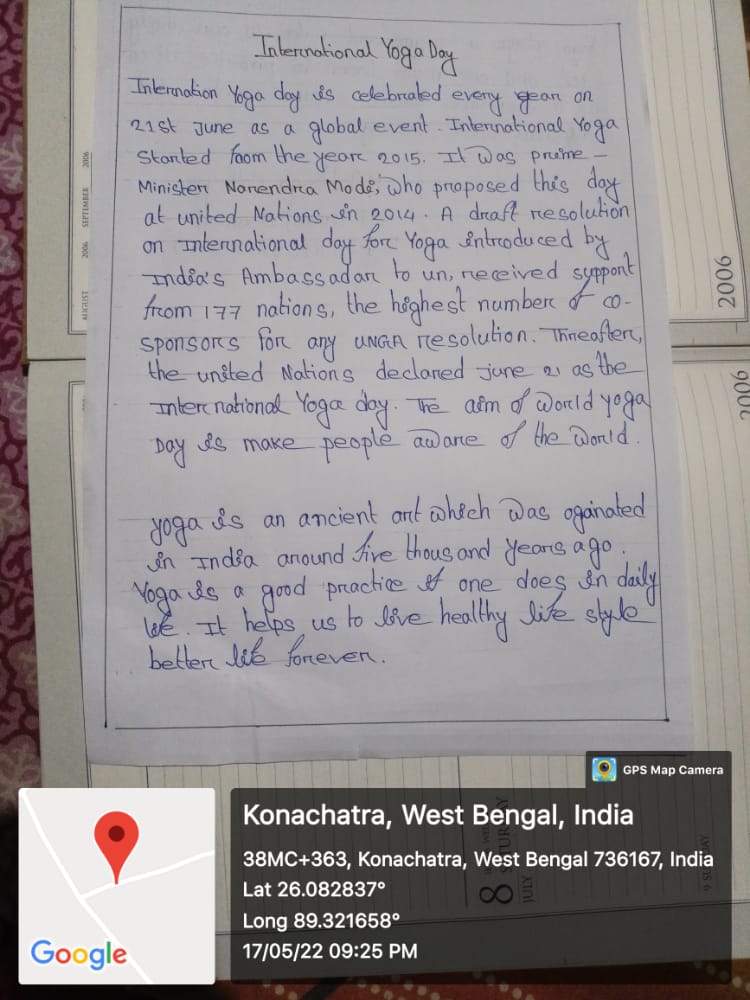 International Yoga Day
Internation Yoga day is celebrated every year on
21st June as a global event. International Yoga
Started from the year 2015. It was prime-
Minister Narendra Modi, who proposed this day
at united Nations in 2014. A draft resolution
on International day for Yoga introduced by
India's Ambassadar to un, received support
from 177 nations, the highest number of co-
sponsors for any UNGA resolution. Threafter,
the united Nations declared june 21 as the
International Yoga day. The aim of World yoga
Day is make people aware of the World.
yoga is an ancient art which was oginated
in India around five thousand years ago.
Yoga is a good practice if one does in daily
life. It helps us to live healthy life style
better life forever.
AUGUST 2006 SEPTEMBER 2006
2006
2006
GPS Map Camera
Konachatra, West Bengal, India
38MC+363, Konachatra, West Bengal 736167, India
Lat 26.082837°
Long 89.321658°
17/05/22 09:25 PM
Google
8
JULY